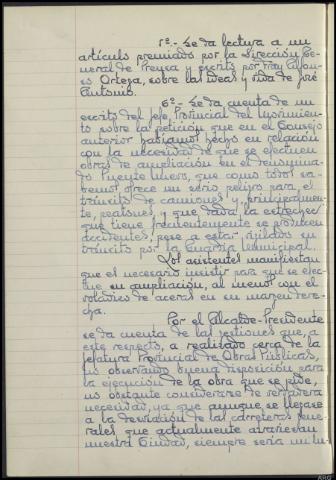 1º.- Se da lectura a un
artículo premiado por la Dirección Ge-
neral de Prensa y escrito por Fray
Ortega, sobre las ideas y vida de José
Antonio.
6º.- Se da cuenta de un
escrito del Jefe Provincial del Movimien-
to sobre la petición que en el Consejo
anterior habíamos hecho en relación
con la necesidad de que se efectuen
obras de ampliación en el denomina-
do Puente Nuevo, que como todos sa-
bemos ofrece un serio peligro para el
tránsito de camiones y, principalmen-
te, peatones, y que dada la estrechez
que tiene frecuentemente se producen
accidentes, pese a estar vigilado su
tránsito por la Guardia Municipal.
Los asistentes manifiestan
que es necesario insistir para que se efec-
tue su ampliación, al menos con el
voladizo de aceras en su margen dere-
cha.
Por el Alcalde-Presidente
se da cuenta de las gestiones que, a
este respecto, a realizado cerca de la
Jefatura Provincial de Obras Públicas,
no observando buena disposición para
la ejecución de la obra que se pide,
no obstante considerarse de verdadera
necesidad, ya que aunque se llegase
a la desviación de las carreteras gene-
rales que actualmente atraviesan
nuestra Ciudad, siempre sería un lu-